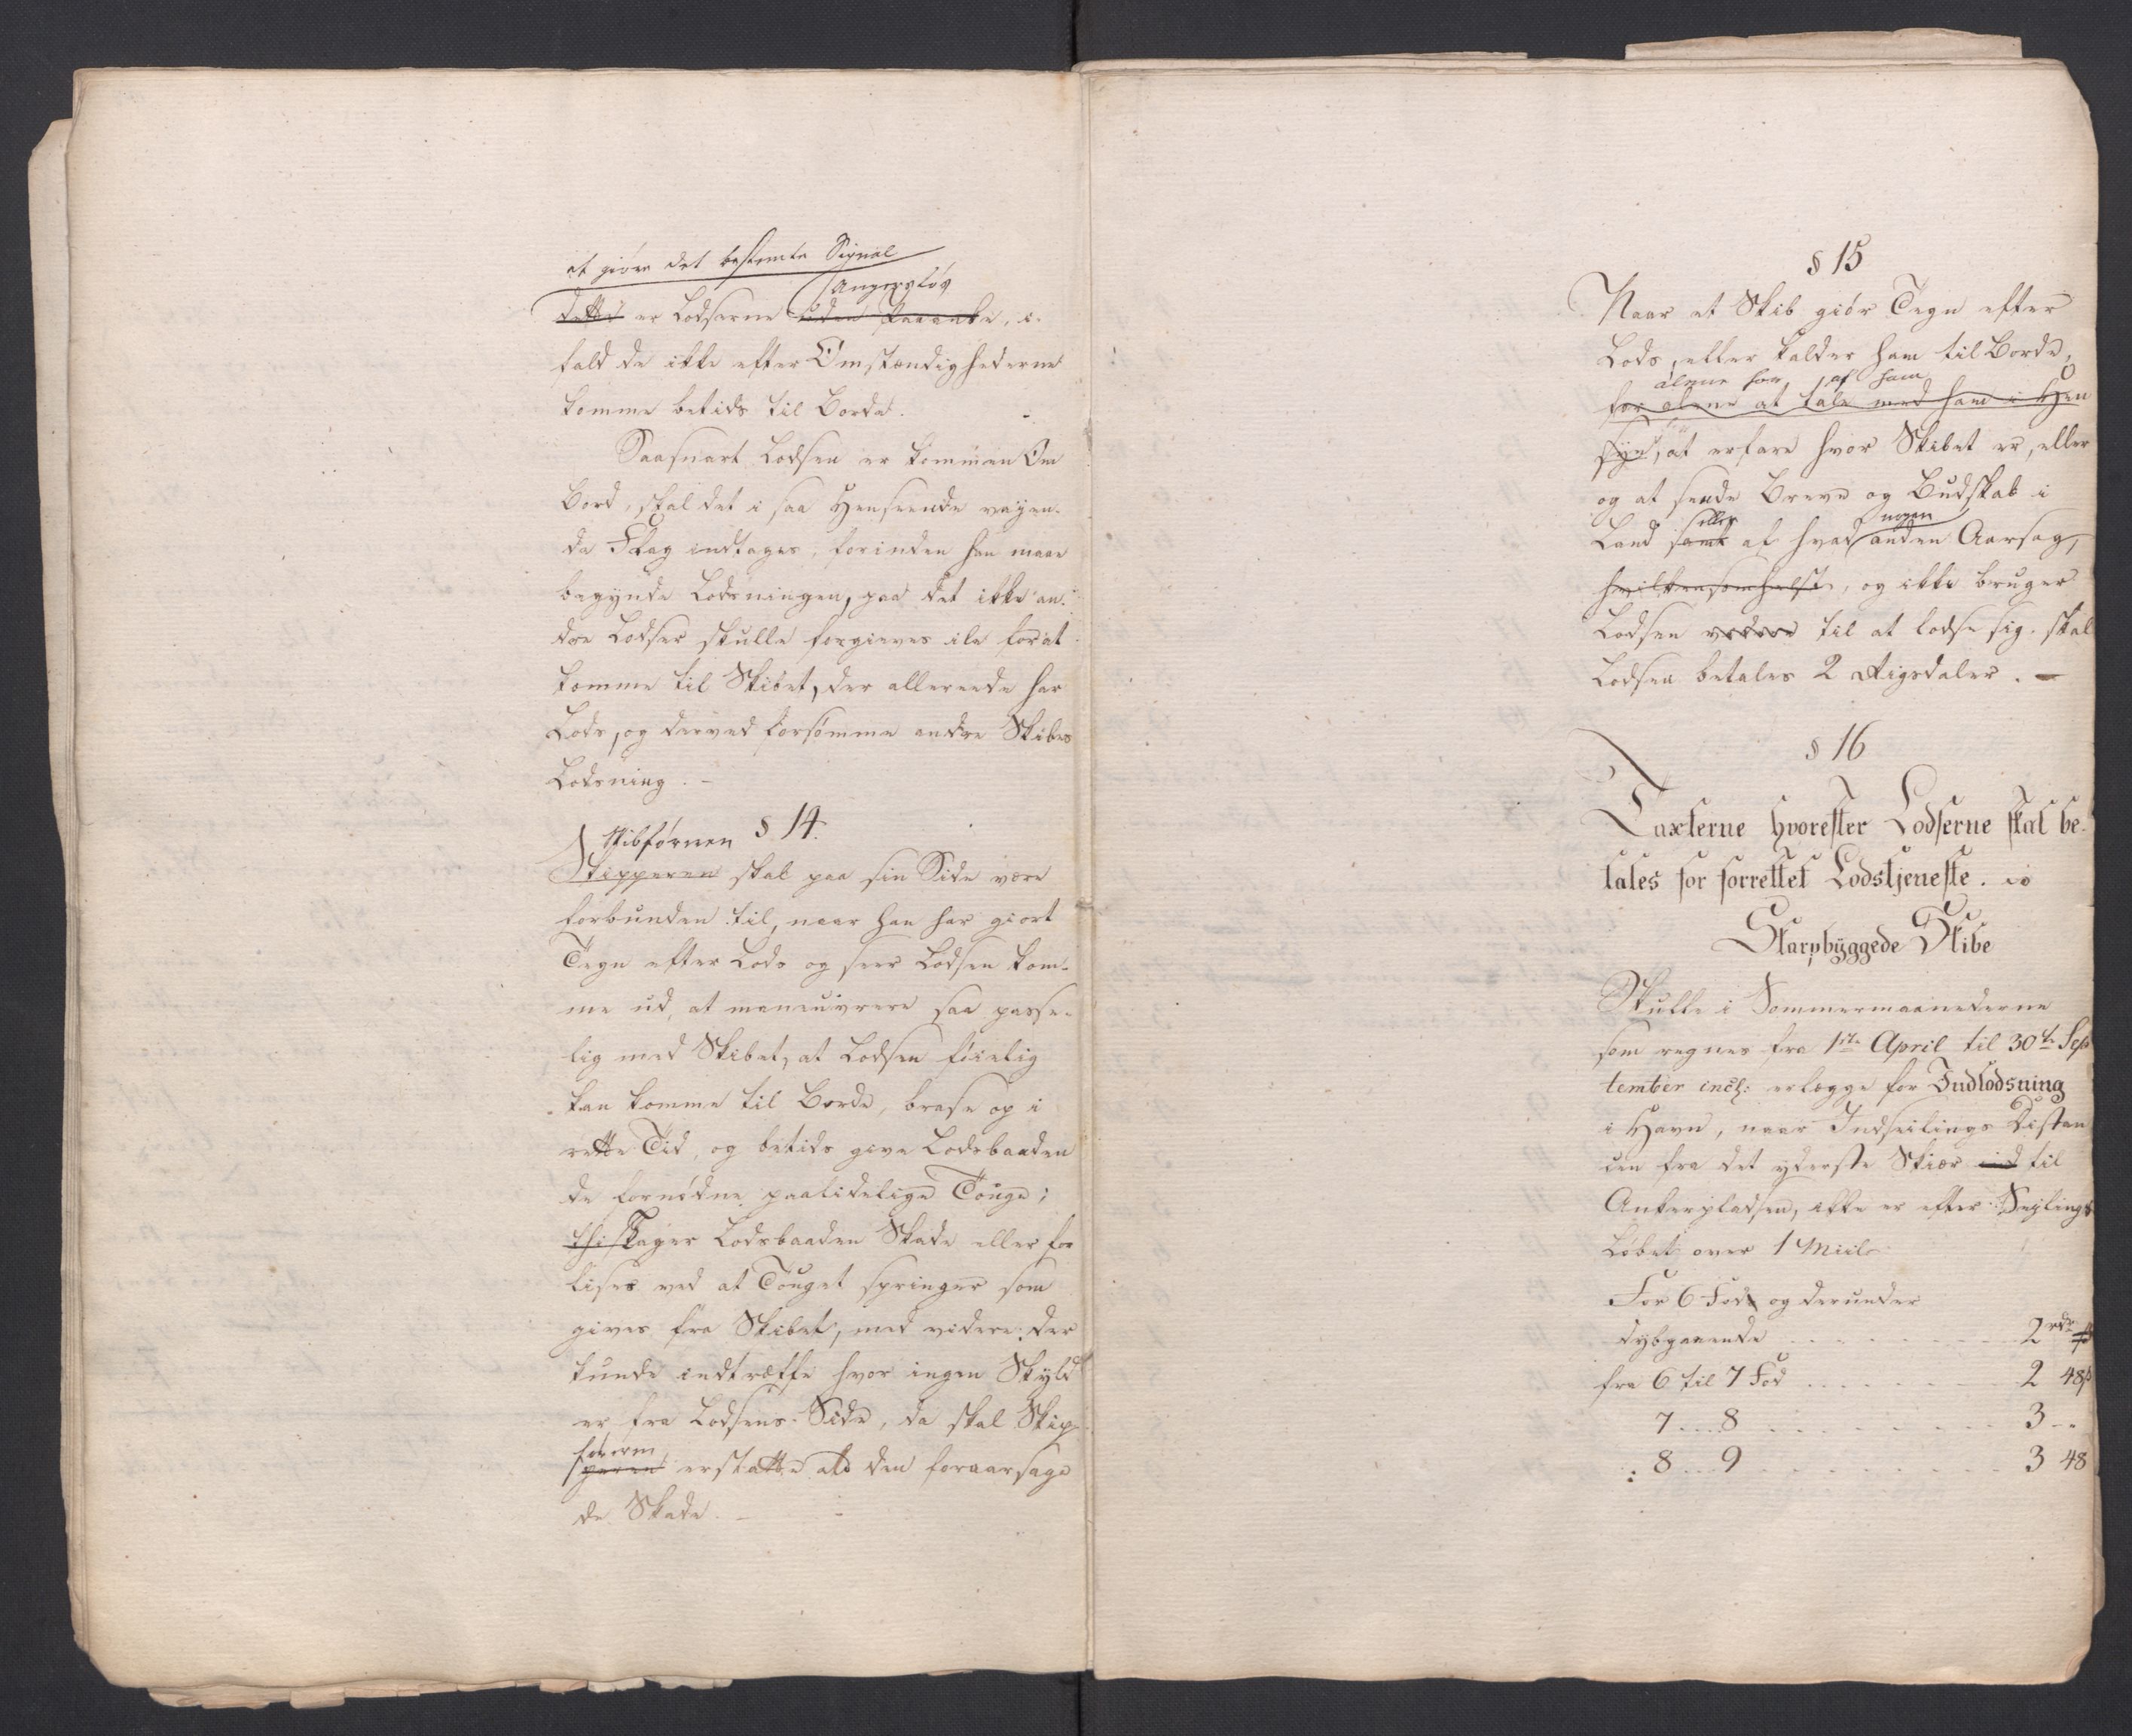 at giøre det bestemte Signal
Angersløs
dette er Lodserne uden Paaanke, i-
fald de ikke efter Omstændighederne
komme betids til Borde.
Saasnart Lodsen er kommen Om
Bord, skal det i saa Henseende vayen-
de Flag indtages, forinden han maae
begynde Lodsningen, paa det ikke an-
dre Lodser skulle forgieves ile for at
komme til Skibet, der allereede har
Lods, og derved forsømme andre Skibes
Lodsning. -
§ 14.
Skibføreren
Skipperen skal paa sin Side være
forbunden til, naar han har giort
Tegn efter Lods og seer Lodsen kom-
me ud, at maneuvrere saa passe-
lig med Skibet, at Lodsen føielig
kan komme til Borde, brase op i
rette Tid, og betids give Lodsbaaden
de fornødne paalidelige Touge;
thi tager Lodsbaaden Skade eller for
lises ved at Touget springer som
gives fra Skibet, med videre der
kunde indtræffe hvor ingen Skyld
er fra Lodsens Side, da skal Skip-
føreren
peren erstatte ald den foraarsage
de Skade. -
§ 15
Naar et Skib giør Tegn efter
Lods, eller kalder ham til Borde,
alene for af ham
for alene at tale med ham i Hen
syn, at erfare hvor Skibet er, eller
og at sende Breve og Budskab i
eller nogen
Land samt af hvad anden Aarsag,
hvilkensomhelst, og ikke bruger
Lodsen videre til at lodse sig, skal
Lodsen betales 2 Rigsdaler. -
§ 16
Taxterne hvorefter Lodserne skal be-
tales for forrettet Lodstjeneste.
Skarpbyggede Skibe
Skulle i Sommermaanederne
som regnes fra 1ste April til 30te Sep
tember incl: erlægge for Indlodsning
i Havn, naar Indseilings Distan
cen fra det yderste Skiær ind til
Ankerpladsen, ikke er efter Seylings
Løbet over 1 Miil
For 6 Fods og derunder
dybgaaende . . . . . . 2 rdr ß
fra 6 til 7 Fod . . . . . . 2 48ß
7 .... 8 . . . . . . 3 --
8 ... 9 . . . . . . 3 48